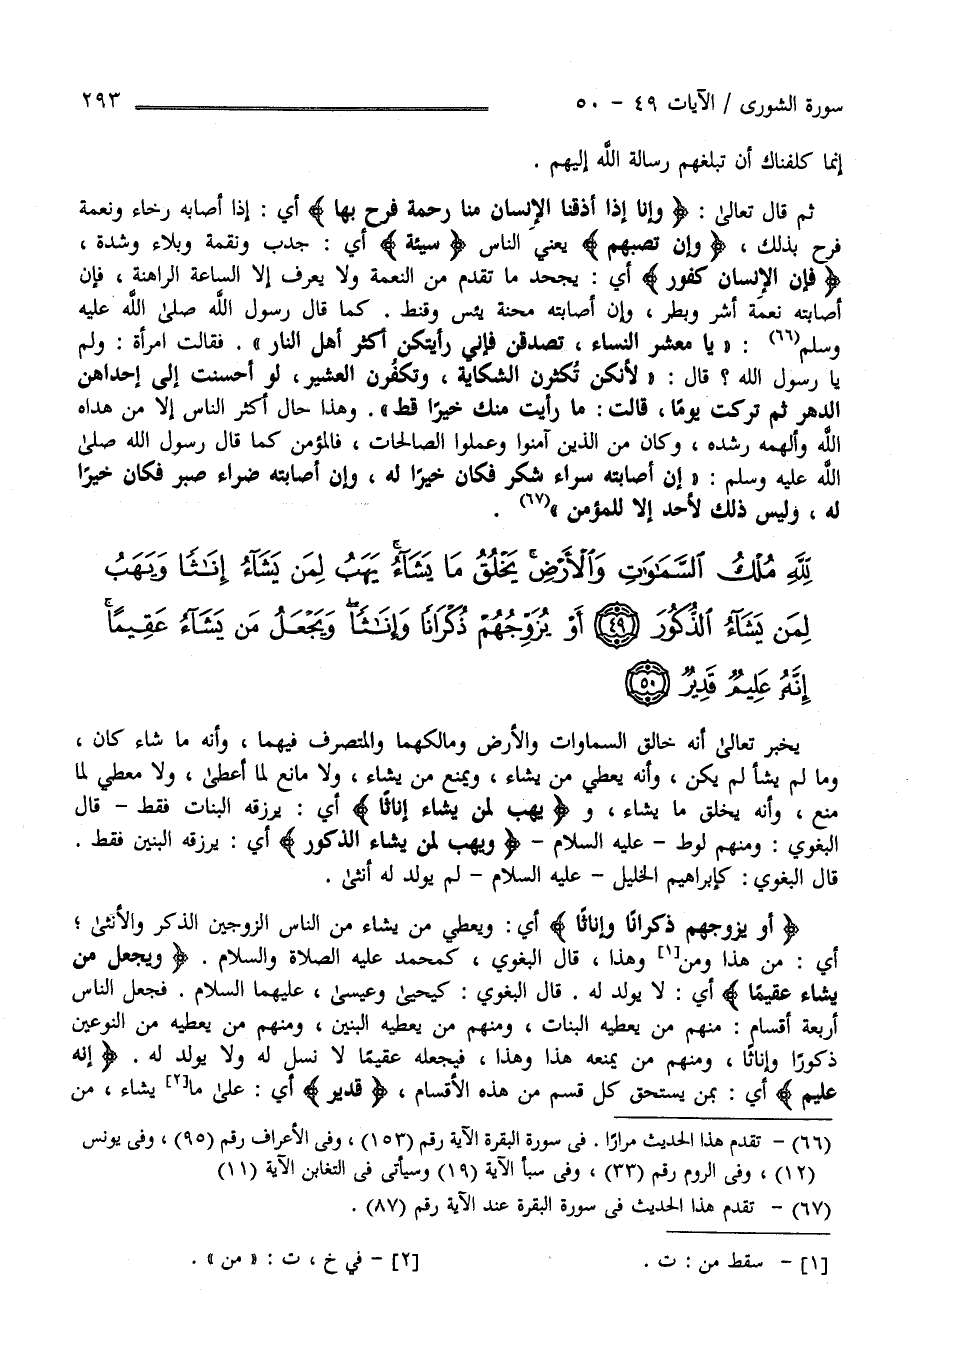 سورة الشورى / الآيات ٤٩ - ٥٠ ٢٩٣
إنما كلفناك أن تبلغهم رسالة اللَّه إليهم .
ثم قال تعالىٰ : ﴿ وإنا إذا أذقنا الإِنسان منا رحمة فرح بها ﴾ أي : إذا أصابه رخاء ونعمة
فرح بذلك ، ﴿ وإن تصبهم ﴾ يعني الناس ﴿ سيئة ﴾ أي : جدب ونقمة وبلاء وشدة ،
﴿ فإن الإِنسان كفور ﴾ أي : يجحد ما تقدم من النعمة ولا يعرف إلا الساعة الراهنة ، فإن
أصابته نعمة أشر وبطر ، وإن أصابته محنة يئس وقنط . كما قال رسول اللَّه صلىٰ اللَّه عليه
وسلم(٦٦) : « يا معشر النساء ، تصدقن فإني رأيتكن أكثر أهل النار » . فقالت امرأة : ولم
يا رسول الله ؟ قال : « لأنكن تُكثرن الشكاية ، وتكفُرن العشير ، لو أحسنت إلى إحداهن
الدهر ثم تركت يومًا ، قالت : ما رأيت منك خيرًا قط» . وهذا حال أكثر الناس إلا من هداه
اللَّه وألهمه رشده ، وكان من الذين آمنوا وعملوا الصالحات ، فالمؤمن كما قال رسول الله صلىٰ
اللَّه عليه وسلم : « إن أصابته سراء شكر فكان خيرًا له ، وإن أصابته ضراء صبر فكان خيرًا
له ، وليس ذلك لأحد إلا للمؤمن »(٦٧) .
لِلَّهِ مُلْكُ ٱلسَّمَٰوَٰتِ وَٱلْأَرْضِۚ يَخْلُقُ مَا يَشَآءُۚ يَهَبُ لِمَن يَشَآءُ إِنَٰثًا وَيَهَبُ
لِمَن يَشَآءُ ٱلذُّكُورَ ٤٩ أَوْ يُزَوِّجُهُمْ ذُكْرَانًا وَإِنَٰثًاۖ وَيَجْعَلُ مَن يَشَآءُ عَقِيمًاۚ
إِنَّهُۥ عَلِيمٌ قَدِيرٌ ٥٠
يخبر تعالىٰ أنه خالق السماوات والأرض ومالكهما والمتصرف فيهما ، وأنه ما شاء كان ،
وما لم يشأ لم يكن ، وأنه يعطي من يشاء ، ويمنع من يشاء ، ولا مانع لما أعطىٰ ، ولا معطي لما
منع ، وأنه يخلق ما يشاء ، و ﴿ يهب لمن يشاء إناثًا ﴾ أي : يرزقه البنات فقط - قال
البغوي : ومنهم لوط - عليه السلام - ﴿ ويهب لمن يشاء الذكور ﴾ أي : يرزقه البنين فقط .
قال البغوي : كإبراهيم الخليل - عليه السلام - لم يولد له أنثىٰ .
﴿ أو يزوجهم ذكرانًا وإناثًا ﴾ أي : ويعطي من يشاء من الناس الزوجين الذكر والأنثىٰ ؛
أي : من هذا ومن[١] وهذا ، قال البغوي ، كمحمد عليه الصلاة والسلام . ﴿ ويجعل من
يشاء عقيمًا ﴾ أي : لا يولد له . قال البغوي : كيحيىٰ وعيسىٰ ، عليهما السلام . فجعل الناس
أربعة أقسام : منهم من يعطيه البنات ، ومنهم من يعطيه البنين ، ومنهم من يعطيه من النوعين
ذكورًا وإناثًا ، ومنهم من يمنعه هذا وهذا ، فيجعله عقيمًا لا نسل له ولا يولد له . ﴿ إنه
عليم ﴾ أي : بمن يستحق كل قسم من هذه الأقسام ، ﴿ قدير ﴾ أي : علىٰ ما[٢] يشاء ، من
(٦٦) - تقدم هذا الحديث مرارًا . فى سورة البقرة الآية رقم (١٥٣) ، وفى الأعراف رقم (٩٥) ، وفى يونس
(١٢) ، وفى الروم رقم (٣٣) ، وفى سبأ الآية (١٩) وسيأتى فى التغابن الآية (١١)
(٦٧) - تقدم هذا الحديث فى سورة البقرة عند الآية رقم (٨٧) .
[١] - سقط من : ت . [٢] - في خ ، ت : « من » .